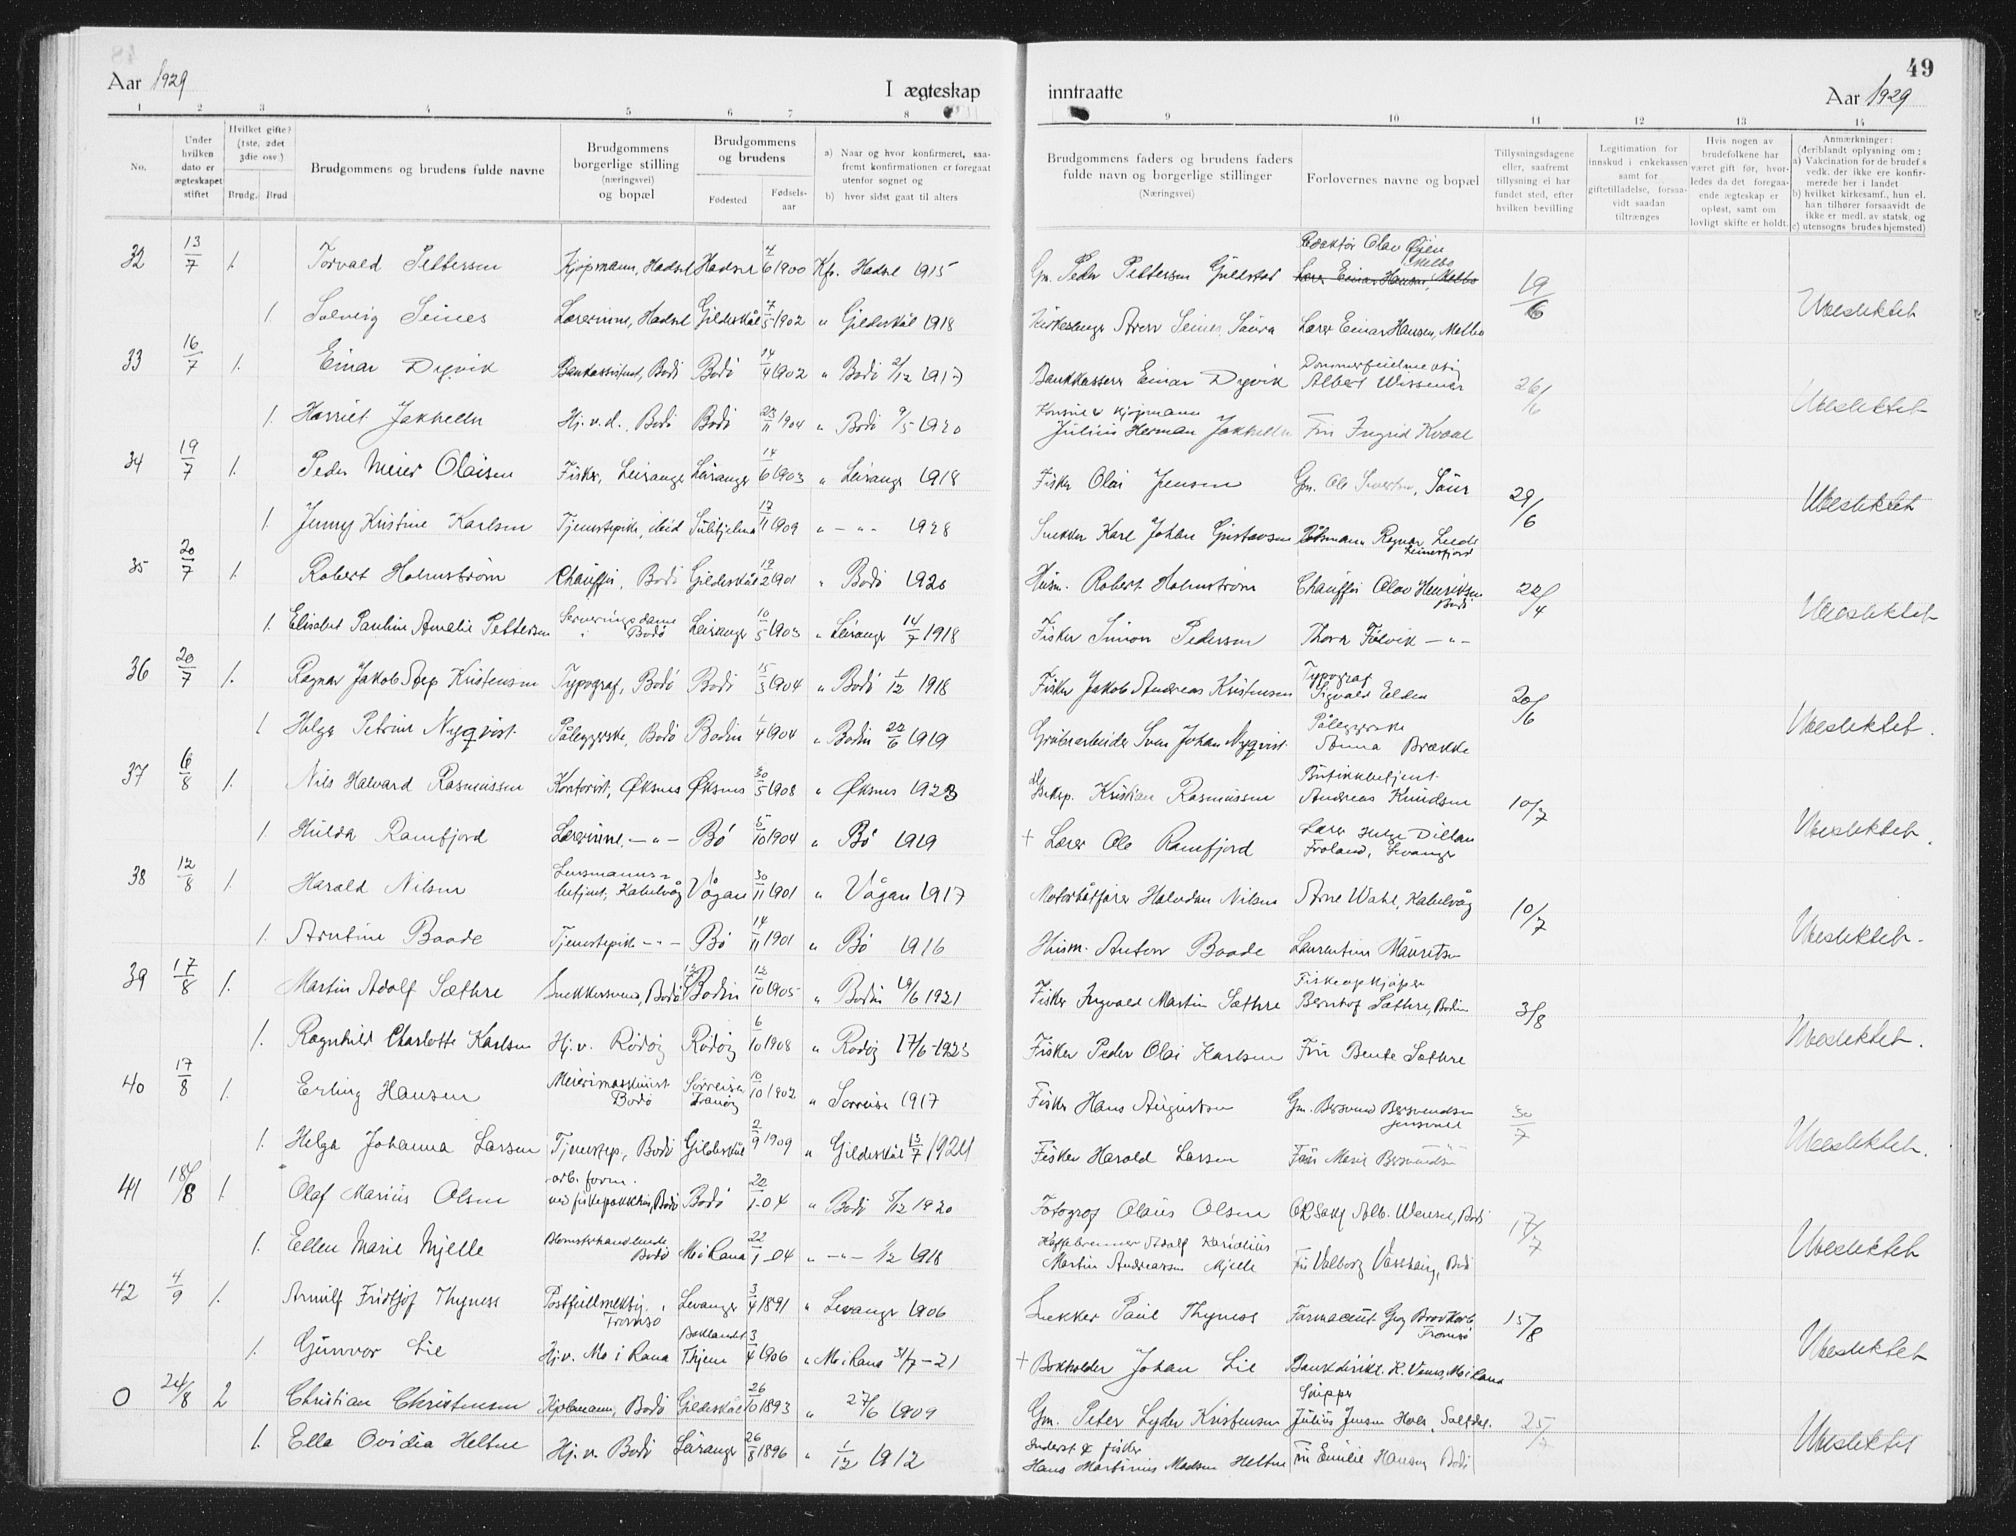 Aar 1929
I ægteskap
inntraatte
49
Aar 1929
1 2 3 4 5 6 7 8 9 10 11 12 13 14
No.
Under hvilken dato er ægteskapet stiftet
Hvilket gifte? (1ste, 2det 3die osv.)
Brudg. Brud
Brudgommens og brudens fulde navne
Brudgommens borgerlige stilling (næringsvei) og bopæl
Brudgommens og brudens
Fødested
Fødsels-aar
a) Naar og hvor konfirmeret, saafremt konfirmationen er foregaat utenfor sognet og
b) hvor sidst gaat til alters
Brudgommens faders og brudens faders fulde navn og borgerlige stillinger
(Næringsvei)
Forlovernes navne og bopæl
Tillysningsdagene eller, saafremt tillysning ei har fundet sted, efter hvilken bevilling
Legitimation for innskud i enkekassen samt for giftetilladelse, forsaavidt saadan tiltrænges
Hvis nogen av brudefolkene har været gift før, hvorledes da det foregaaende ægteskap er opløst, samt om lovligt skifte er holdt.
Anmærkninger: (deriblandt oplysning om:
a) Vakcination for de brudef s vedk. der ikke ere konfirmerede her i landet
b) hvilket kirkesamf., hun el. han tilhører forsaavidt de ikke er medl. av statsk. og
c) utensogns brudes hjemsted)
32 13/7 1. Torvald Pettersen Kjøpmann, Hadsel Hadsel 4/6 1900 Kf. Hadsel 1915 Gm. Peder Pettersen Gullstad Redaktør Olav Øien Melbo 19/6
Lærer Einar Hansen, Melbo
1 Solveig Seines Lærerinne, Hadsel Gildeskål 7/5 1902 " Gildeskål 1918 Kirkesanger Seines, Saura Lærer Einar Hansen, Melbo Uveslektet
33 16/7 1. Einar Dyrvik Bankassistent, Bodø Bodø 14/4 1902 " Bodø 2/12 1917 Bankkasserer Einar Dyrvik Dommerfullmektig Albert Wissener 26/6
1. Harriet Jakhelln Hj.v.d., Bodø Bodø 23/11 1904 " Bodø 9/5 1920 Konsul & kjøpmann Julius Herman Jakhelln Fru Ingrid Kvaal Uveslektet
34 19/7 1. Peder Meier Olaisen Fisker, Leiranger Leiranger 14/6 1903 " Leiranger 1918 Fisker Olai Jensen Gm. Ole Sivertsen, Saur 29/6
1. Jenny Kristine Karlsen Tjenestepike, ibid Sulitjelma 17/11 1909 " - " - 1928 Snekker Karl Johan Gustavsen Ragnar Lund Leinesfjord Uveslektet
35 20/7 1. Robert Holmstrøm Chauffør, Bodø Gildeskål 19/2 1901 " Bodø 1920 Husm. Robert Holmstrøm Chauffør Olav Henriksen Bodø 22/4
1. Elisabet Pauline Amelie Pettersen Serveringsdame Bodø Leiranger 10/5 1903 " Leiranger 14/7 1918 Fisker Simon Pedersen Thora Falvik - " - Uveslektet
36 20/7 1. Ragnar Jakob Kristensen Typograf, Bodø Bodø 15/3 1904 " Bodø 1/12 1918 Fisker Jakob Andreas Kristensen Typograf Sigvald Elden 20/6
1 Helga Petrine Nyqvist Påleggerske, Bodø Bodin 1/4 1904 " Bodin 22/6 1919 Grubearbeider Sven Johan Nyqvist Påleggerske Anna Brække Uveslektet.
37 6/8 1. Nils Halvard Rasmussen Kontorist, Øksnes Øksnes 30/5 1908 " Øksnes 1923 Kristian Rasmussen Butikkbetjent Andreas Knudsen 10/7
1. Hulda Ramfjord Lærerinne, - " - Bø 5/10 1904 " Bø 1919 + Lærer Ole Ramfjord Lærer Helge Dillan Froland, Levanger Uveslektet.
38 12/8 1. Harald Nilsen Lensmannsbetjent, Kabelvåg Vågan 30/11 1901 " Vågan 1917 Motorbåtfører Halvdan Nilsen Arne Wahl, Kabelvåg 10/7
1. Arntine Baade Tjenestepike - " - Bø 14/11 1901 " Bø 1916 Husm. Anton Baade Laurentius Mauritsen Uveslektet.
39 17/8 1. Martin Adolf Sæthre Snekkersvend, Bodø Bodin 12/10 1905 " Bodin 19/6 1921 Fisker Ingvald Martin Sæthre Fiskeopkjøper Berntof Sæthre, Bodin 3/8
1. Ragnhild Charlotte Karlsen Hj.v. Rødøy Rødøy 6/10 1908 " Rødøy 17/6-1923 Fisker Peder Olai Karlsen Fru Bente Sæthre Uveslektet.
40 17/8 1. Erling Hansen Meierimaskinist Bodø Sørreisa Tranøy 10/10 1902 " Sørreisa 1917 Fisker Hans Augustsen Gm. Bersvend Bersvendsen Junsvel 30/7
1. Helga Johanna Larsen Tjenestep, Bodø Gildeskål 2/9 1909 " Gildeskål 13/7 1924 Fisker Harald Larsen Fru Marie Uveslektet.
41 18/8 1. Olaf Marius Olsen arb. form. ved fiskepakkhus, Bodø Bodø 20/1-04 " Bodø 5/12 1920 Fotograf Olaus Olsen Alb. Wensel, Bodø 17/7
1. Ellen Marie Mjelle Blomsterhandlende Bodø Mo i Rana 22/1-04 " - " - 1/12 1918 Kaffebrenner Adolf Kornelius Martin Andreassen Mjelle Fru Valborg Bodø Uveslektet
42 4/9 1. Arnulf Fridtjof Thyness Postfullmektig, Tromsø Levanger 3/4 1891 " Levanger 1906 Snekker Paul Thyness Farmaceut Georg Brodkorb, Tromsø 15/8
1. Gunvor Lie Hj.v. Mo i Rana Baklandet Thjem 3/4 1906 " Mo i Rana 31/7-21 + Bokholder Johan Lie Bankdirekt. K. Mo i Rana Uveslektet
0 24/8 2 Christian Christensen Kjøbmann, Bodø Gildeskål 26/10 1893 " 27/6 1909 Gm. Peter Lyder Kristensen Skipper Julius Jensen Saltdal. 25/7
1. Ella Ovidia Heltne Hj.v. Bodø Leiranger 26/8 1896 " 1/12 1912 Inderst & fisker Hans Martinus Madsen Heltne Fru Emilie Hansen Bodø Uveslektet